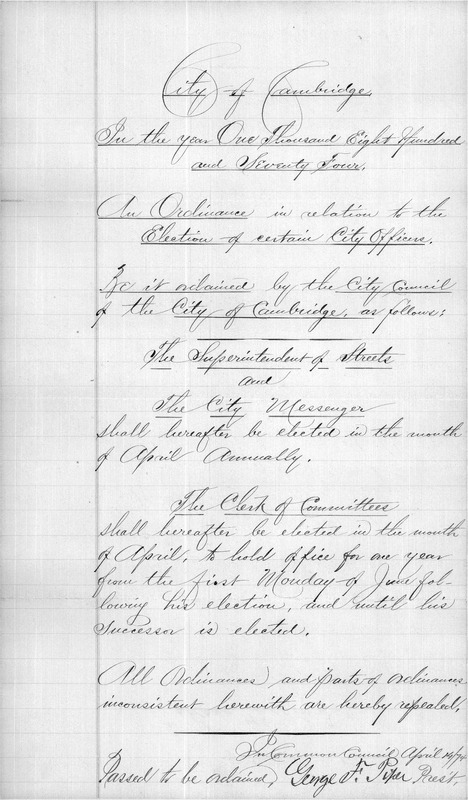 City of Cambridge
In the year One Thousand Eight Hundred
and Seventy Four.
An Ordinance in relation to the
Election of certain City Officers.
Be it ordained by the City Council
of the City of Cambridge, as follows:
The Superintendent of Streets
and
The City Messenger
shall hereafter be elected in the month
of April Annually.
The Clerk of Committees
shall hereafter be elected in the month
of April, to hold office for one year
from the first Monday of June fol-
lowing his election, and until his
successor is elected.
All Ordinances and parts of ordinances
inconsistent herewith are hereby repealed.
In Common Council April 14/74
Passed to be ordained, George F. Piper Prest.